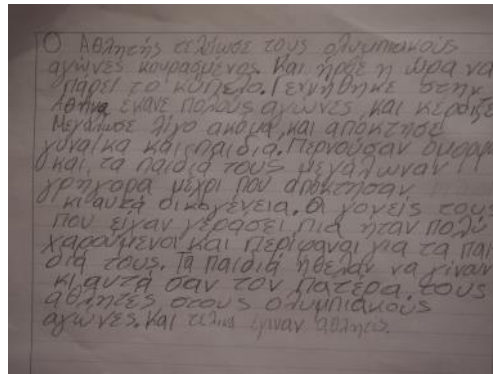 Ο Αθλητής τελίωσε τους ολυμπιακούς
αγώνες κουρασμένος. Και ήρθε η ώρα να
πάρει το κύπελο. Γεννήθηκε στην
Αθήνα έκανε πολούς αγώνες και κέρδιζε
Μεγάλωσε λίγο ακόμα, και απόκτησε
γυναίκα και παιδιά. Περνούσαν όμορφα
και, τα παιδιά τους μεγάλωναν
γρήγορα μέχρι που απόκτησαν
κι αυτά οικογένεια. Οι γονείς τους
που είχαν γεράσει πια ήταν πολύ
χαρούμενοι και περίφανοι για τα παι
διά τους. Τα παιδιά ήθελαν να γίνουν
κι αυτά σαν τον πατέρα τους
αθλητές στους ολυμπιακούς
αγώνες. Και τελικά έγιναν αθλητές.